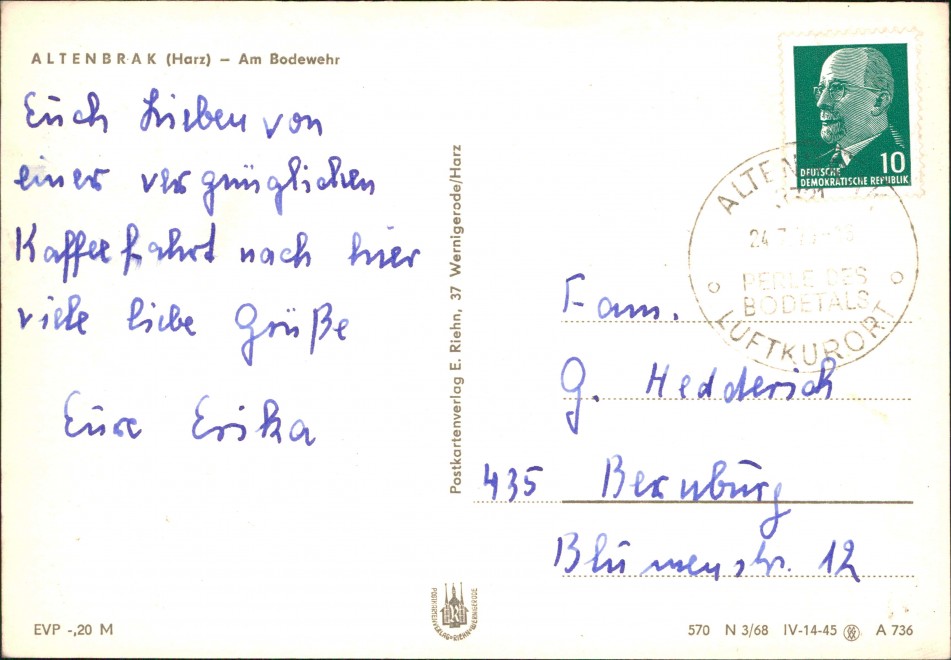 ALTENBRAK (Harz) – Am Bodewehr
Euch Lieben von
einer vergnüglichen
Kaffeefahrt nach hier
viele liebe Grüße
Eure Erika
Postkartenverlag E. Riehn, 37 Wernigerode/Harz
10
DEUTSCHE
DEMOKRATISCHE REPUBLIK
PERLE DES
BODETALS
LUFTKURORT
Fam.
G. Hedderich
435 Bernburg
Blumenstr. 12
POSTKARTENVERLAG·RIEHN·WERNIGERODE
EVP -,20 M
570 N 3/68 IV-14-45 A 736